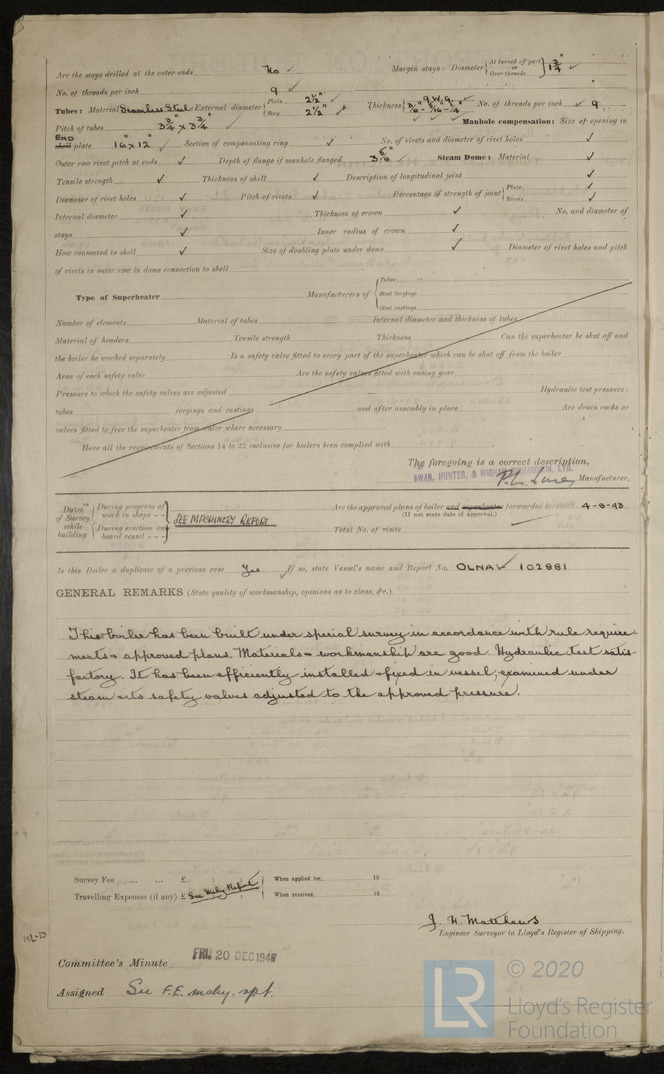 Are the stays drilled at the outer ends No ✓ Margin stays: Diameter { At turned off part or Over threads } 1 3/4" ✓
No. of threads per inch 9 ✓
Tubes: Material Seamless Steel External diameter { Plain 2 1/2" ✓ Stay 2 1/2" Thickness { 9 W.G. ✓ 3/16" - 5/16" - 1/4" No. of threads per inch ✓ 9
Pitch of tubes 3 3/4" x 3 3/4" ✓ Manhole compensation: Size of opening in
END shell plate 16" x 12" ✓ Section of compensating ring ✓ No. of rivets and diameter of rivet holes ✓
Outer row rivet pitch at ends ✓ Depth of flange if manhole flanged 3 5/8" ✓ Steam Dome: Material ✓
Tensile strength ✓ Thickness of shell ✓ Description of longitudinal joint ✓
Diameter of rivet holes ✓ Pitch of rivets ✓ Percentage of strength of joint { Plate ✓ Rivets ✓
Internal diameter ✓ Thickness of crown ✓ No. and diameter of
stays ✓ Inner radius of crown ✓
How connected to shell ✓ Size of doubling plate under dome ✓ Diameter of rivet holes and pitch
of rivets in outer row in dome connection to shell
Type of Superheater Manufacturers of { Tubes Steel forgings Steel castings
Number of elements Material of tubes Internal diameter and thickness of tubes
Material of headers Tensile strength Thickness Can the superheater be shut off and
the boiler be worked separately Is a safety valve fitted to every part of the superheater which can be shut off from the boiler
Area of each safety valve Are the safety valves fitted with easing gear
Pressure to which the safety valves are adjusted Hydraulic test pressure:
tubes forgings and castings and after assembly in place Are drain cocks or
valves fitted to free the superheater from water where necessary
Have all the requirements of Sections 14 to 22 inclusive for boilers been complied with
The foregoing is a correct description,
SWAN, HUNTER, & WIGHAM RICHARDSON, LTD. Manufacturer.
Dates of Survey while building { During progress of work in shops - - During erection on board vessel - - - } SEE MACHINERY REPORT
Are the approved plans of boiler and superheater forwarded herewith 4-8-43
(If not state date of approval.)
Total No. of visits
Is this Boiler a duplicate of a previous case Yes If so, state Vessel's name and Report No. OLNA ✓ 102881
GENERAL REMARKS (State quality of workmanship, opinions as to class, &c.)
This boiler has been built under special survey in accordance with rule require-
ments & approved plans. Materials & workmanship are good. Hydraulic test satis-
factory. It has been efficiently installed & fixed in vessel, examined under
steam & its safety valves adjusted to the approved pressure.
Survey Fee ... ... £ : : } When applied for, 19
Travelling Expenses (if any) £ See Mchy Report } When received, 19
J. H. Matthews
Engineer Surveyor to Lloyd's Register of Shipping.
Committee's Minute FRI. 20 DEC 1946
Assigned See F.E. mchy. rpt.
© 2020
LR Lloyd's Register
Foundation